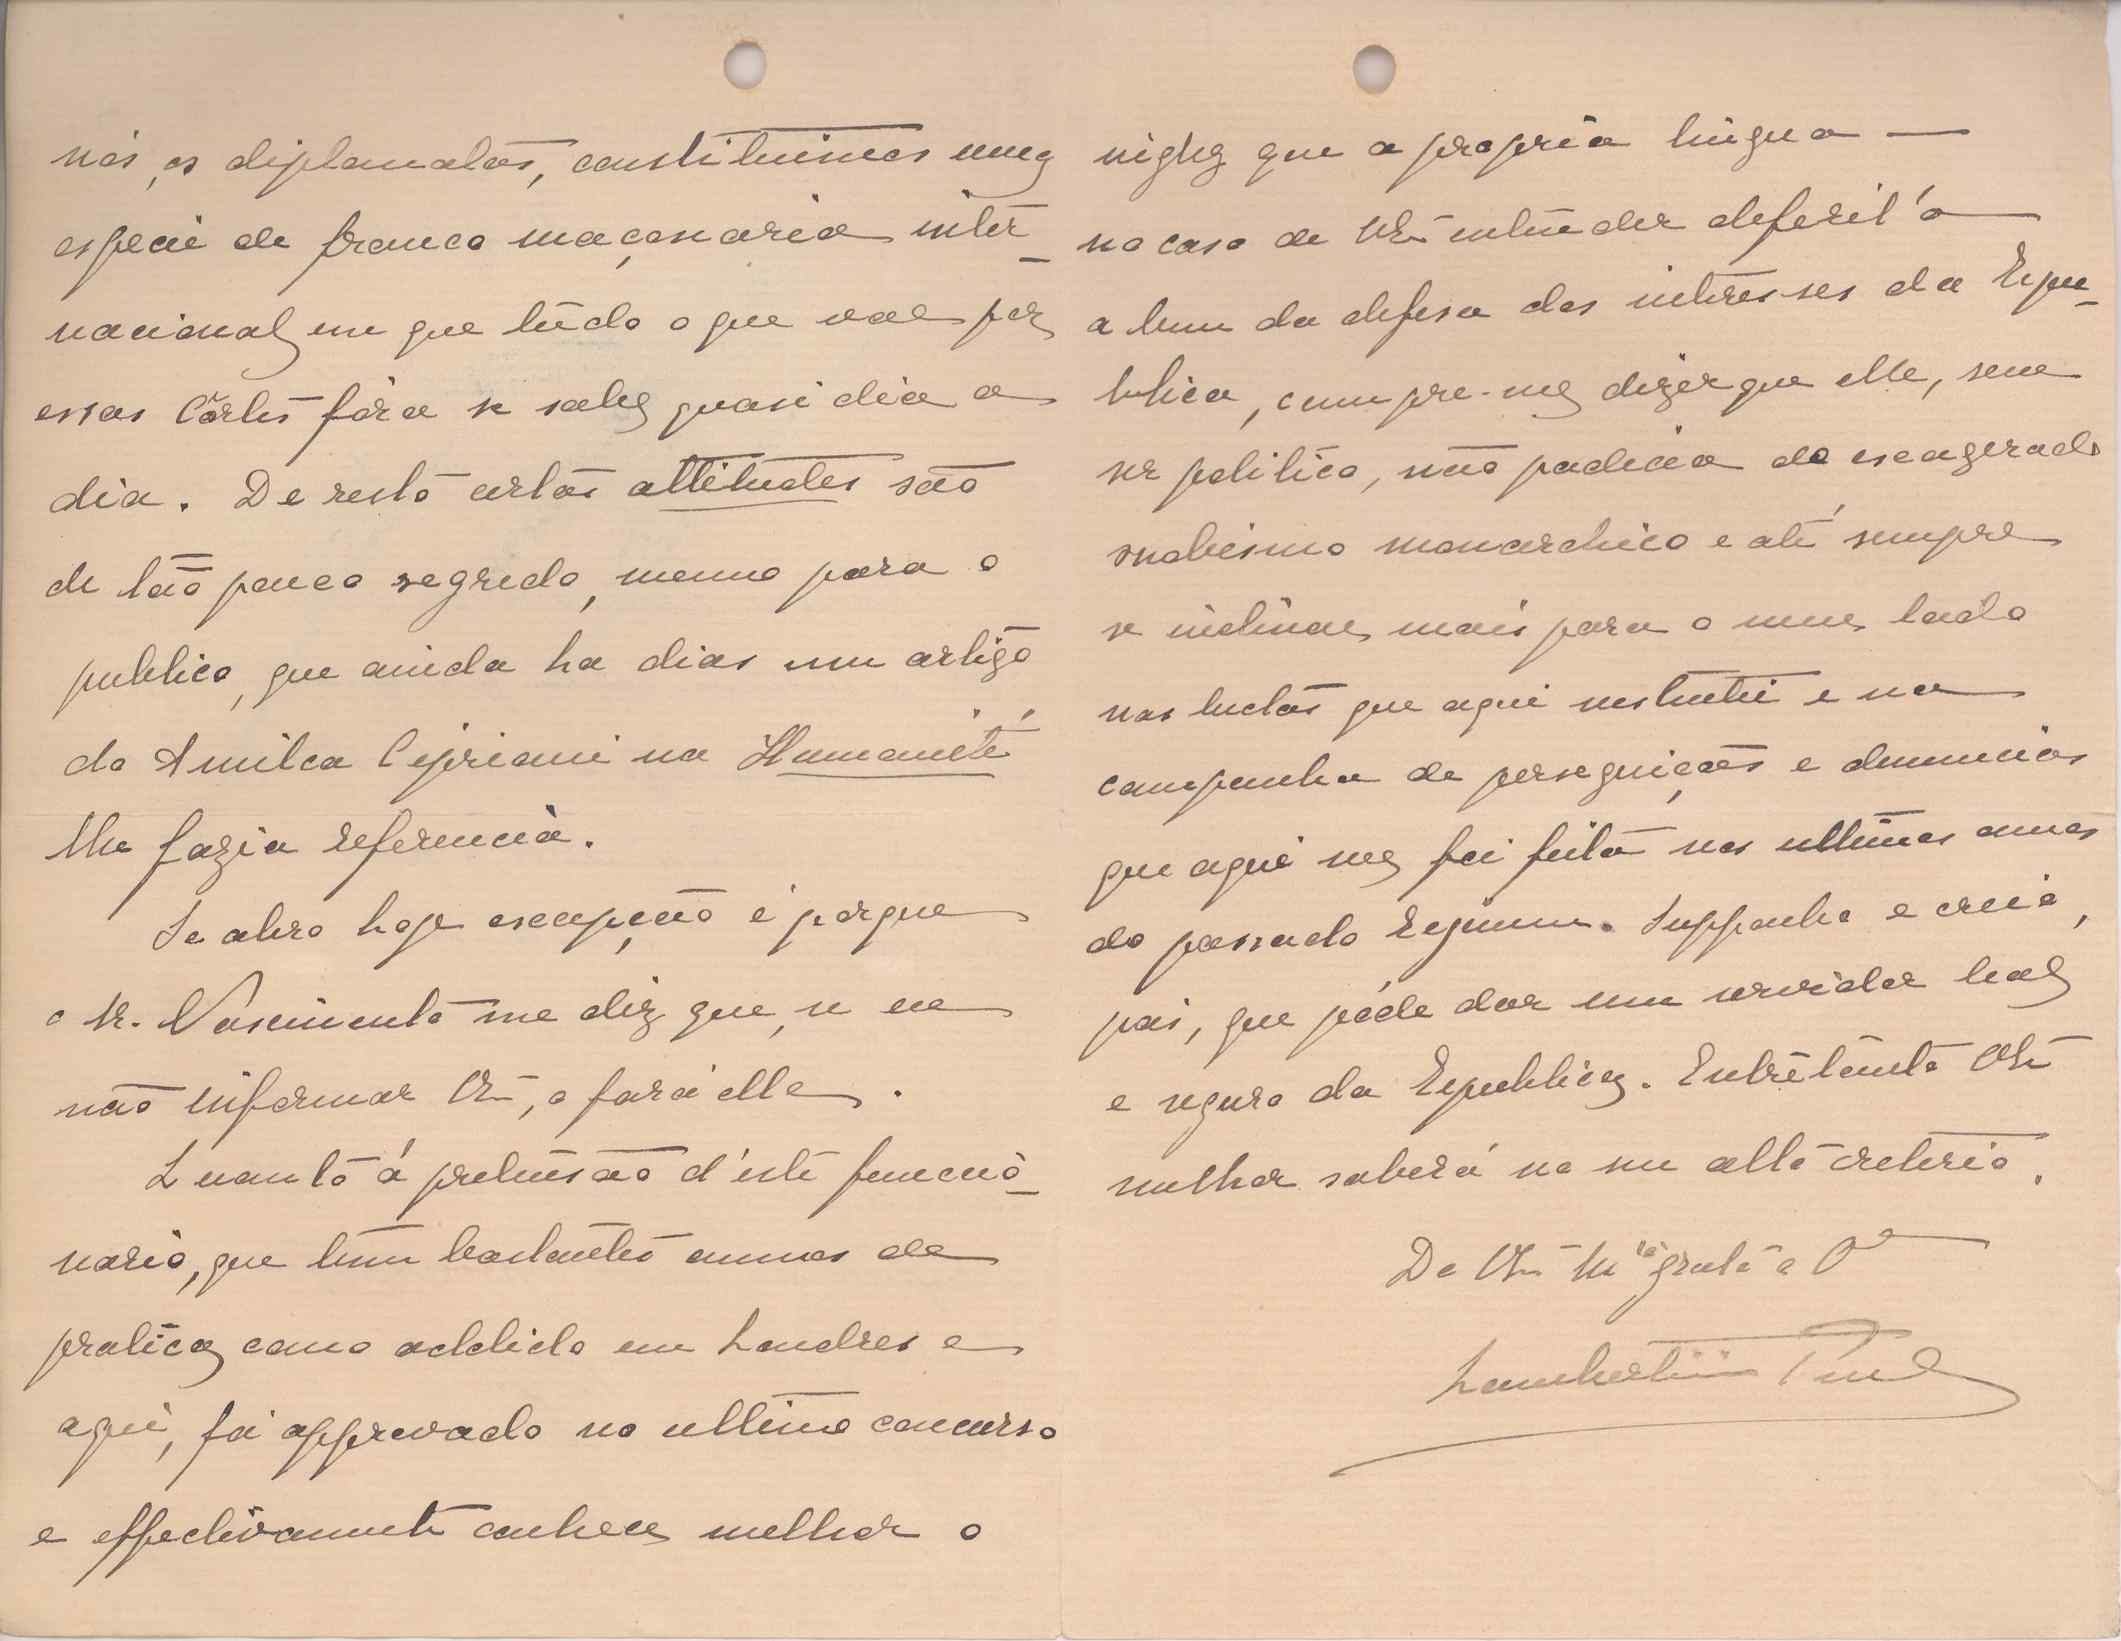 nós, os diplomatas, constituimos uma
especie de franco maçonaria inter-
nacional em que tudo o que vae por
essas Côrtes fóra se sabe quasi dia a
dia. De resto certas attitudes são
de tão pouco segredo, mesmo para o
publico, que ainda ha dias um artigo
do Amilca Cipriani na Humanité
lhe fazia referencia.
Se abro hoje escepção é porque
o Sr. Nascimento me diz que, se eu
não informar VExª, o fará elle.
Quanto á pretensão d'este funccio-
nario, que tem bastantes annos de
pratica como addido em Londres e
aqui, foi approvado no ultimo concurso
e effectivamente conhece melhor o
inglez que a propria lingua —
no caso de VExª entender deferil'a
a bem da defesa dos interesses da Repu-
blica, cumpre-me dizer que elle, sem
ser politico, não padecia do escagerado
snobismo monarchico e até sempre
se inclinou mais para o meu lado
nas luctas que aqui sustentei e na
campanha de perseguições e denuncias
que aqui me foi feita nos ultimos annos
do passado regimen. Supponho e creio,
pois, que póde dar um servidor leal
e seguro da Republica. Entretanto VExª
melhor saberá no seu alto criterio.
De VExª Mto grato e Oº
Lambertini Pinto